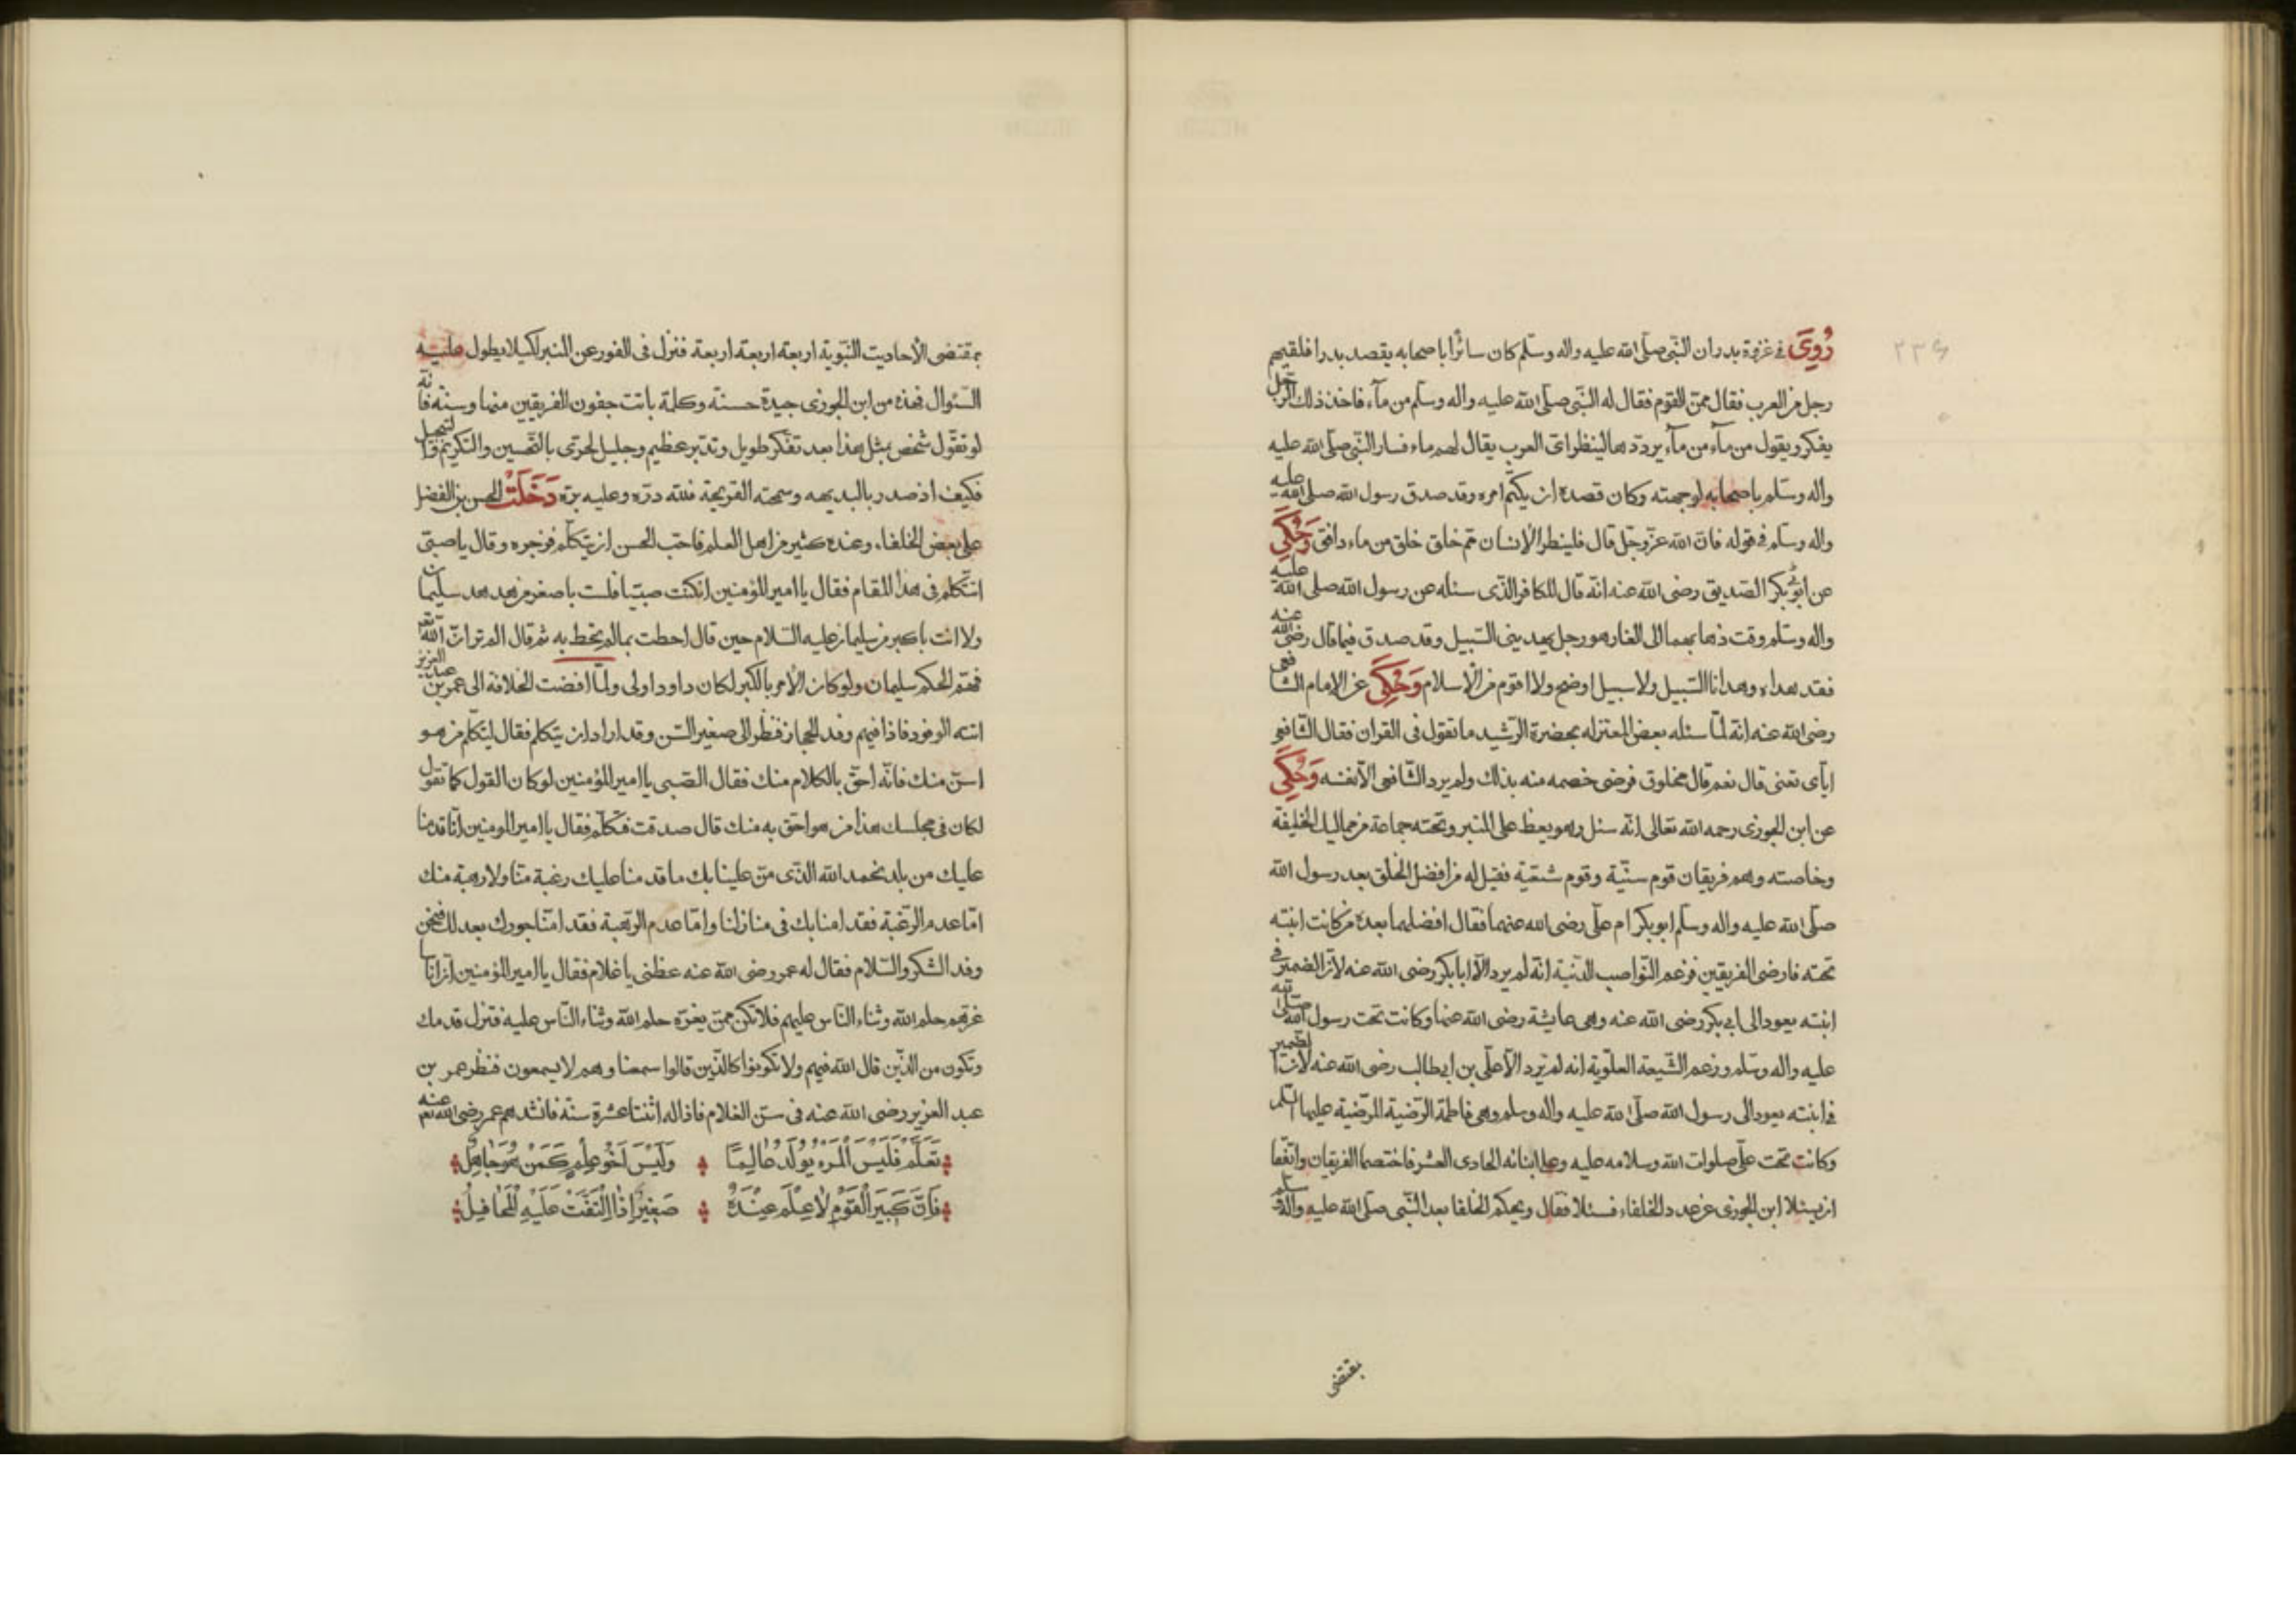 ٢٣٤
رُوِيَ في غزوة بدر ان النّبي صلّى الله عليه واله وسلّم كان سائرا باصحابه يقصد بدرا فلقيهم
رجل من العرب فقال ممّن القوم فقال له النّبي صلّى الله عليه واله وسلّم من مآء فاخذ ذلك الرّجل
يفكر ويقول من مآء من مآء يردّدها لينظر اىّ العرب يقال لهم ماء فسار النّبي صلّى الله عليه
واله وسلّم باصحابه لوجهته وكان قصده ان يكتم امره وقد صدق رسول الله صلى الله عليه
واله وسلم في قوله فانّ الله عزّ وجل قال فلينظر الإنسان ممّ خلق خلق من ماء دافق وَحُكِيَ
عن ابو بكر الصّديق رضى الله عنه انّه قال للكافر الذّى سئله عن رسول الله صلى الله عليه
واله وسلّم وقت ذهابهما الى الغار هو رجل يهدينى السّبيل وقد صدق فيما قال رضى الله عنه
فقد هداه وهدانا السّبيل ولا سبيل اوضح ولا اقوم من الإسلام وَحُكِيَ عن الإمام الشافعى
رضى الله عنه انّه لمّا سئله بعض المعتزله بحضرة الرّشيد ما تقول فى القران فقال الشّافعى
ايّاى تعنى قال نعم قال مخلوق فرضى خصمه منه بذلك ولم يرد الشّافعى الّا نفسه وَحُكِيَ
عن ابن الجوزى رحمه الله تعالى انّه سئل وهو يعظ على المنبر وتحته جماعة من مماليك الخليفة
وخاصته وهم فريقان قوم سنّية وقوم شيعية فقيل له من افضل الخلق بعد رسول الله
صلّى الله عليه واله وسلّم ابو بكر ام علّى رضى الله عنهما فقال افضلهما بعده من كانت ابنته
تحته فارضى الفريقين فزعم النّواصب الدّنية انّه لم يرد الّا ابا بكر رضى الله عنه لانّ الضمير فى
ابنته يعود الى ابى بكر رضى الله عنه وهى عايشة رضى الله عنها وكانت تحت رسول الله صلّى الله
عليه واله وسلّم وزعم الشّيعة العلّوية انه لم يرد الّا علّى بن ابى طالب رضى الله عنه لانّ الضمير
فى ابنته يعود الى رسول الله صلّى الله عليه واله وسلم وهى فاطمة الرّضية المرضّية عليها السّلم
وكانت تحت علّى صلوات الله وسلامه عليه وعلى ابنائه الحادى العشر فاختصما الفريقان واتّفقا
ان يسئلا ابن الجوزى عن عدد الخلفاء فسئلا فقال ويحكم الخلفا بعد النّبى صلى الله عليه واله وسلم
بمقتضى
بمقتضى الأحاديث النّبوية اربعة اربعة اربعة فنزل فى الفور عن المنبر لكيلا يطول عليه
السّئوال فهذه من ابن الجوزى جيدة حسنة وكلمة باتت جفون الفريقين منها وسنه فانّه
لو تقوّل شخص بمثل هذا بعد تفكر طويل وتدبّر عظيم وجليل لحرّى بالتّحسين والتكريم والتبجيل
فكيف اذ صدر بالبديهه وسمحته القريحة فللّه درّه وعليه برّه دَخَلَتْ الحسن بن الفضل
على بعض الخلفاء وعنده كثير من اهل العلم فاحّب الحسن ان يتكلّم فزجره وقال يا صبّى
اتتكلم فى هذا المقام فقال يا امير المؤمنين ان كنت صبيّا فلست باصغر من هدهد سليمان
ولا انت باكبر من سليمان عليه السّلام حين قال احطت بما لم تحط به ثم قال الم تر انّ الله تعه
فهّم الحكم سليمان ولو كان الأمر بالكبر لكان داود اولى ولمّا افضت الخلافة الى عمر بن عبد العزيز
اتته الوفود فاذا فيهم وفد الحجاز فنظر الى صغير السّن وقد اراد ان يتكلم فقال ليتكلّم من هو
اسنّ منك فانّه احقّ بالكلام منك فقال الصّبى يا امير المؤمنين لو كان القول كما تقول
لكان فى مجلسك هذا من هو احق به منك قال صدقت فتكلّم فقال يا امير المومنين انّا قدمنا
عليك من بلد نحمد الله الذّى منّ علينا بك ما قدمنا عليك رغبة منّا ولا رهبة منك
امّا عدم الرّغبة فقد امنا بك فى منازلنا وامّا عدم الرّهبة فقد امنّا جورك بعدلك فنحن
وفد الشكر والسّلام فقال له عمر رضى الله عنه عظنى يا غلام فقال يا امير المؤمنين انّ اناسا
غرّهم حلم الله وثناء النّاس عليهم فلا تكن ممّن يغرّه حلم الله وثناء النّاس عليه فتزل قدمك
وتكون من الذّين قال الله فيهم ولا تكونوا كالذّين قالوا سمعنا وهم لا يسمعون فنظر عمر بن
عبد العزيز رضى الله عنه فى سنّ الغلام فاذا له اثنتا عشرة سنّة فانشدهم عمر رضى الله تعه عنه
تَعَلَّمْ فَلَيْسَ الْمَرْءُ يُولَدُ عَالِمًا وَلَيْسَ اَخُو عِلْمٍ كَمَنْ هُوَ جَاهِلُ
فَاِنَّ كَبِيَر الْقَوْمِ لٰا عِلْمَ عِنْدَهُ صَغِيْرٌ اِذٰا الْتَفَّتْ عَلَيْهِ الْمَحَافِلُ